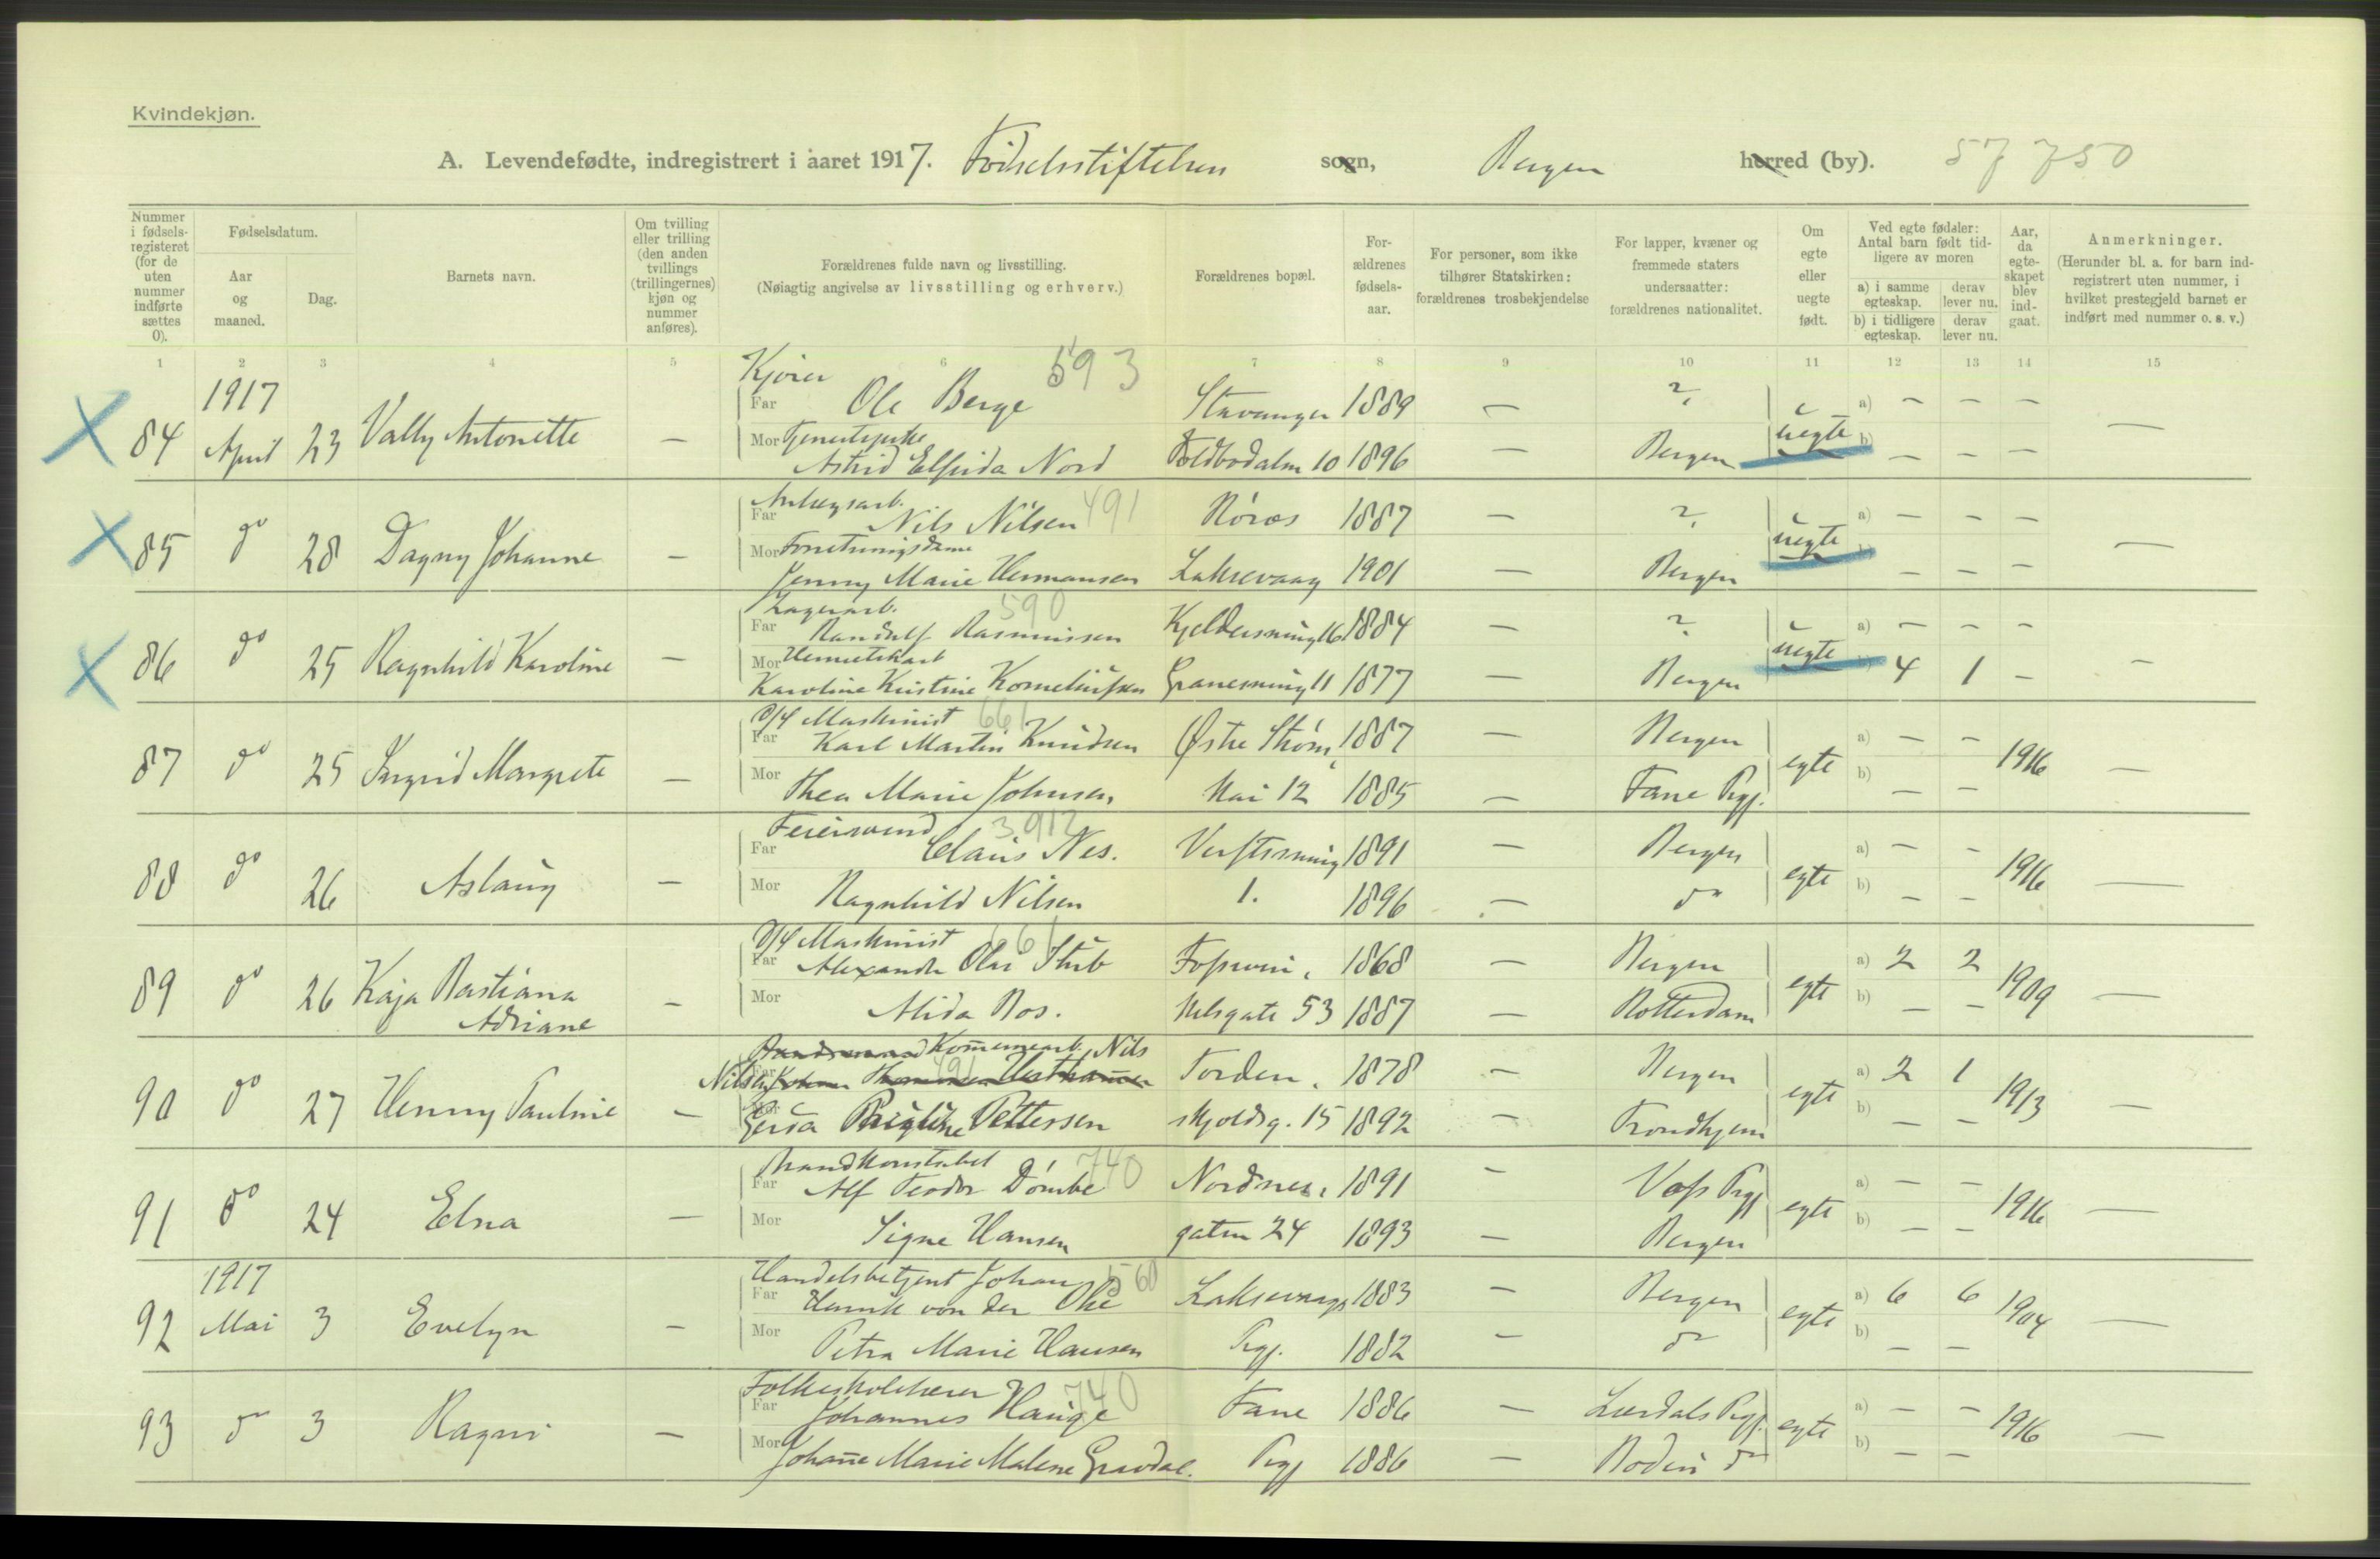 Kvindekjøn.
A. Levendefødte, indregistrert i aaret 1917. Fødselsstiftelsen sogn, Bergen herred (by). 57 750
Nummer i fødsels-registeret (for de uten nummer indførte sættes 0).
Fødselsdatum.
Aar og maaned.
Dag.
Barnets navn.
Om tvilling eller trilling (den anden tvillings (trillingernes) kjøn og nummer anføres).
Forældrenes fulde navn og livsstilling.
(Nøiagtig angivelse av livsstilling og erhverv.)
Forældrenes bopæl.
For-ældrenes fødsels-aar.
For personer, som ikke tilhører Statskirken: forældrenes trosbekjendelse
For lapper, kvæner og fremmede staters undersaatter: forældrenes nationalitet.
Om egte eller uegte født.
Ved egte fødsler: Antal barn født tid-ligere av moren
a) i samme egteskap. derav lever nu.
b) i tidligere egteskap. derav lever nu.
Aar, da egte-skapet blev ind-gaat.
Anmerkninger.
(Herunder bl. a. for barn ind-registrert uten nummer, i hvilket prestegjeld barnet er indført med nummer o. s. v.)
1 2 3 4 5 6 7 8 9 10 11 12 13 14 15
Kjører 593
1917 Far Ole Berge Stavanger 1889 — ? a) — — —
84 April 23 Vally Antonette — uegte —
Mor Tjenestepike
Astrid Elfrida Nord Toldbodalm 10 1896 — Bergen b) — — —
Anlegsarb. 491
Far Nils Nilsen Röros 1887 — ? a) — — —
85 do 28 Dagny Johanne — uegte —
Mor Forretningsdame
Jenny Marie Hermansen Laksevaag 1901 — Bergen — — —
Lagerarb. 590
Far Randulf Rasmussen Kjeldersmug 16 1884 — ? a) — — —
86 do 25 Ragnhild Karoline — uegte —
Mor
Karoline Kristine Korneliussen Granesmug 11 1877 — Bergen 4 1 —
D/S Maskinist 661
Far Karl Martin Knudsen Østre Strøm 1887 — Bergen a) — —
87 do 25 Ingrid Margrete — egte 1916 —
Mor Thea Marie Johnsen Kai 12 1885 — Fane Pgj. b) — —
Feiersvend 3912
Far Claus Nes. Verftssmug 1891 — Bergen a) — —
88 do 26 Aslaug — egte 1916 —
Mor Ragnhild Nilsen 1. 1896 — do b) — —
D/S Maskinist 661
Far Alexander Olai Stub Fosswin 1868 — Bergen a) 2 2
89 do 26 Kaja Bastiana Adriane — egte 1909 —
Mor Alida Bos. kelsgate 53 1887 — Rotterdam b) — —
Nils 491
Far Torden 1878 — Bergen a) 2 1
90 do 27 Henny Pauline — egte 1913 —
Mor Gerda Pettersen skjoldsg. 15 1892 — Trondhjem b) — —
Brandkonstabel 740
Far Alf Teodor Dömbe Nordnes 1891 — Voss Pgj a) — —
91 do 24 Elna — egte 1916 —
Mor Signe Hansen gaten 24 1893 — Bergen b) — —
1917 Handelsbetjent Johan 560
Far Henrik von der Ohe Laksevaags 1883 — Bergen a) 6 6
92 Mai 3 Evelyn — egte 1904 —
Mor Petra Marie Hansen Pgj. 1882 — do b) — —
Folkeskolelærer 740
Far Johannes Hauge Fane 1886 — Lærdals Pgj. a) — —
93 do 3 Ragni — egte 1916 —
Mor Johanne Marie Malene Gravdal. Pgj 1886 — Bodin do b) — —